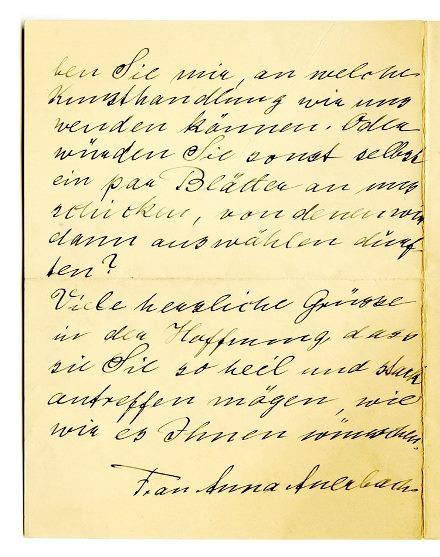 ben Sie mir, an welche
Kunsthandlung wir uns
wenden können. Oder
würden Sie sonst selbst
ein par Blätter an uns
schicken, von denen wir
dann auswählen dürf
ten?
Viele herzliche Grüsse
in der Hoffnung, dass
sie Sie so heil und stark
antreffen mögen, wie
wir es Ihnen wünschen.
Frau Anna Auerbach